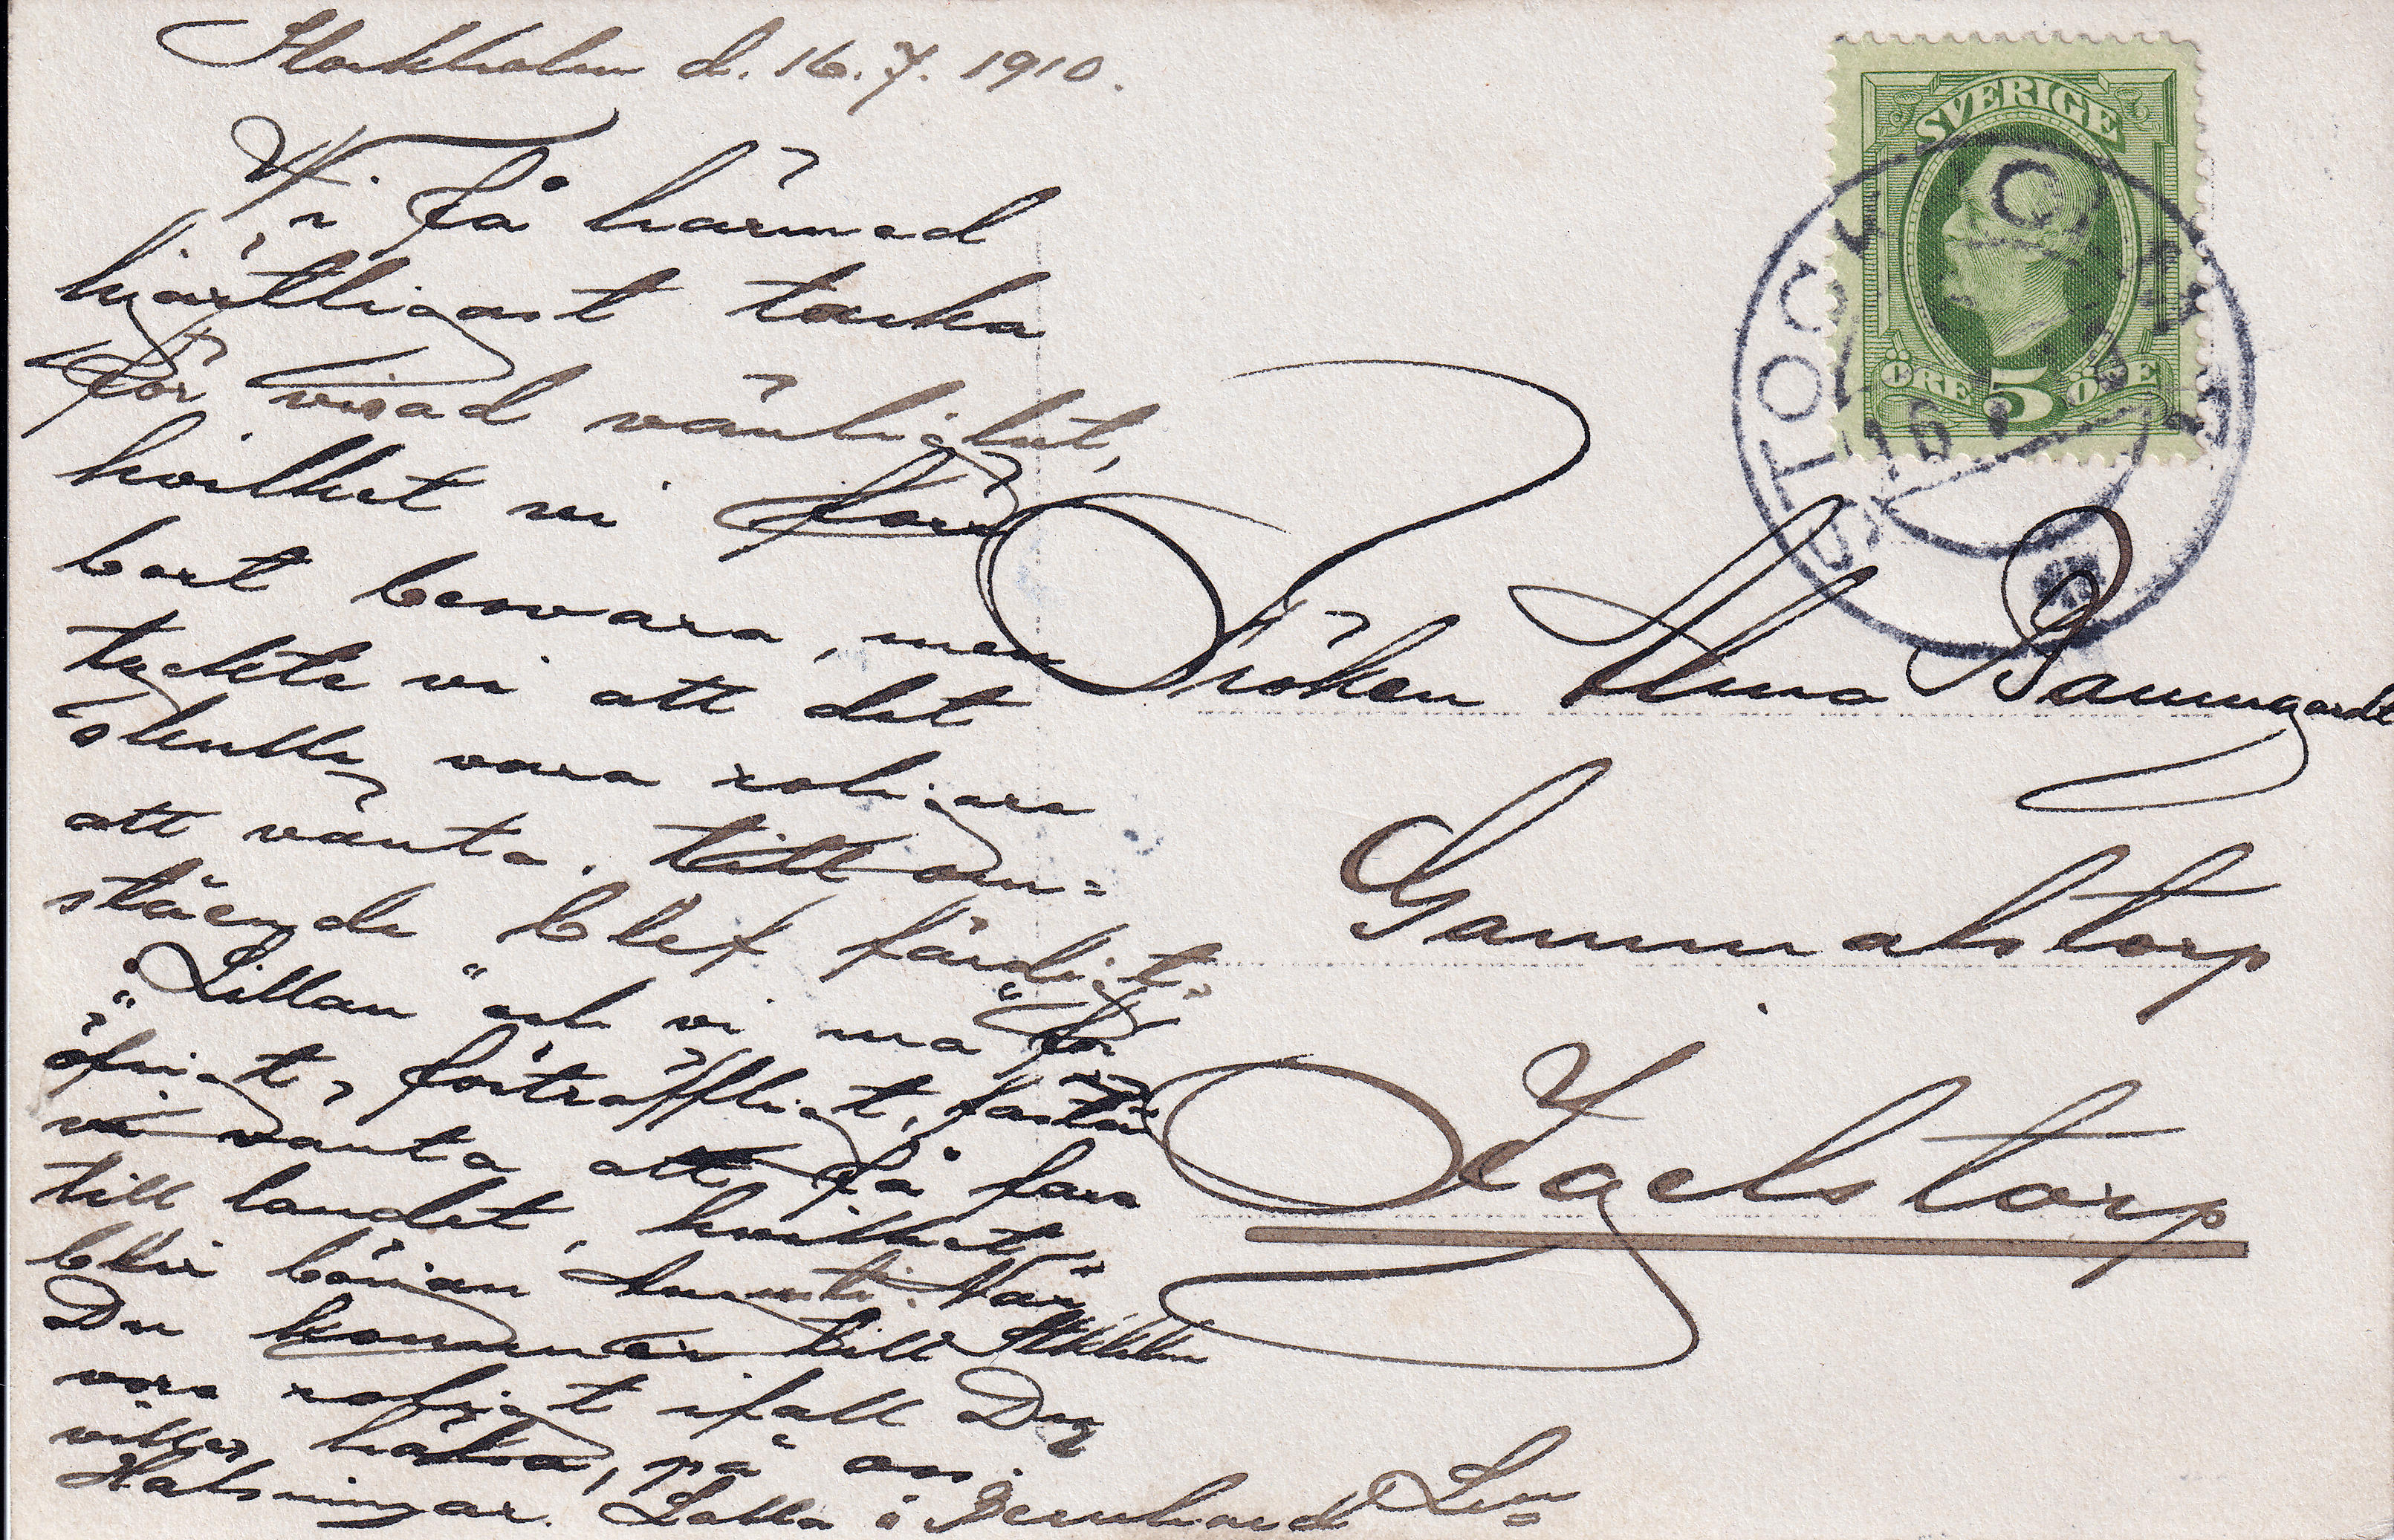 Stockholm d. 16.7. 1910.
Vi få härmed
hjärtligast tacka
för visad vänlighet,
hvilket vi
bort besvara, men
tyckte vi att det
skulle vara roligare
att vänta, till om=
stående blef färdigt.
"Lillan" och vi må för
öfrigt, förträffligt, fastän
vi vänta att få fara
till landet, hvilket
blir början Augusti. När
Du kommer till Sthlm
vore roligt ifall Du
ville hälsa, på oss.
Hälsningar. Lalla o Bernhard
SVERIGE
ÖRE 5 ÖRE
STOCKHOLM
16
Fröken Alma Baumgardt
Gammalstorp
Igelstorp